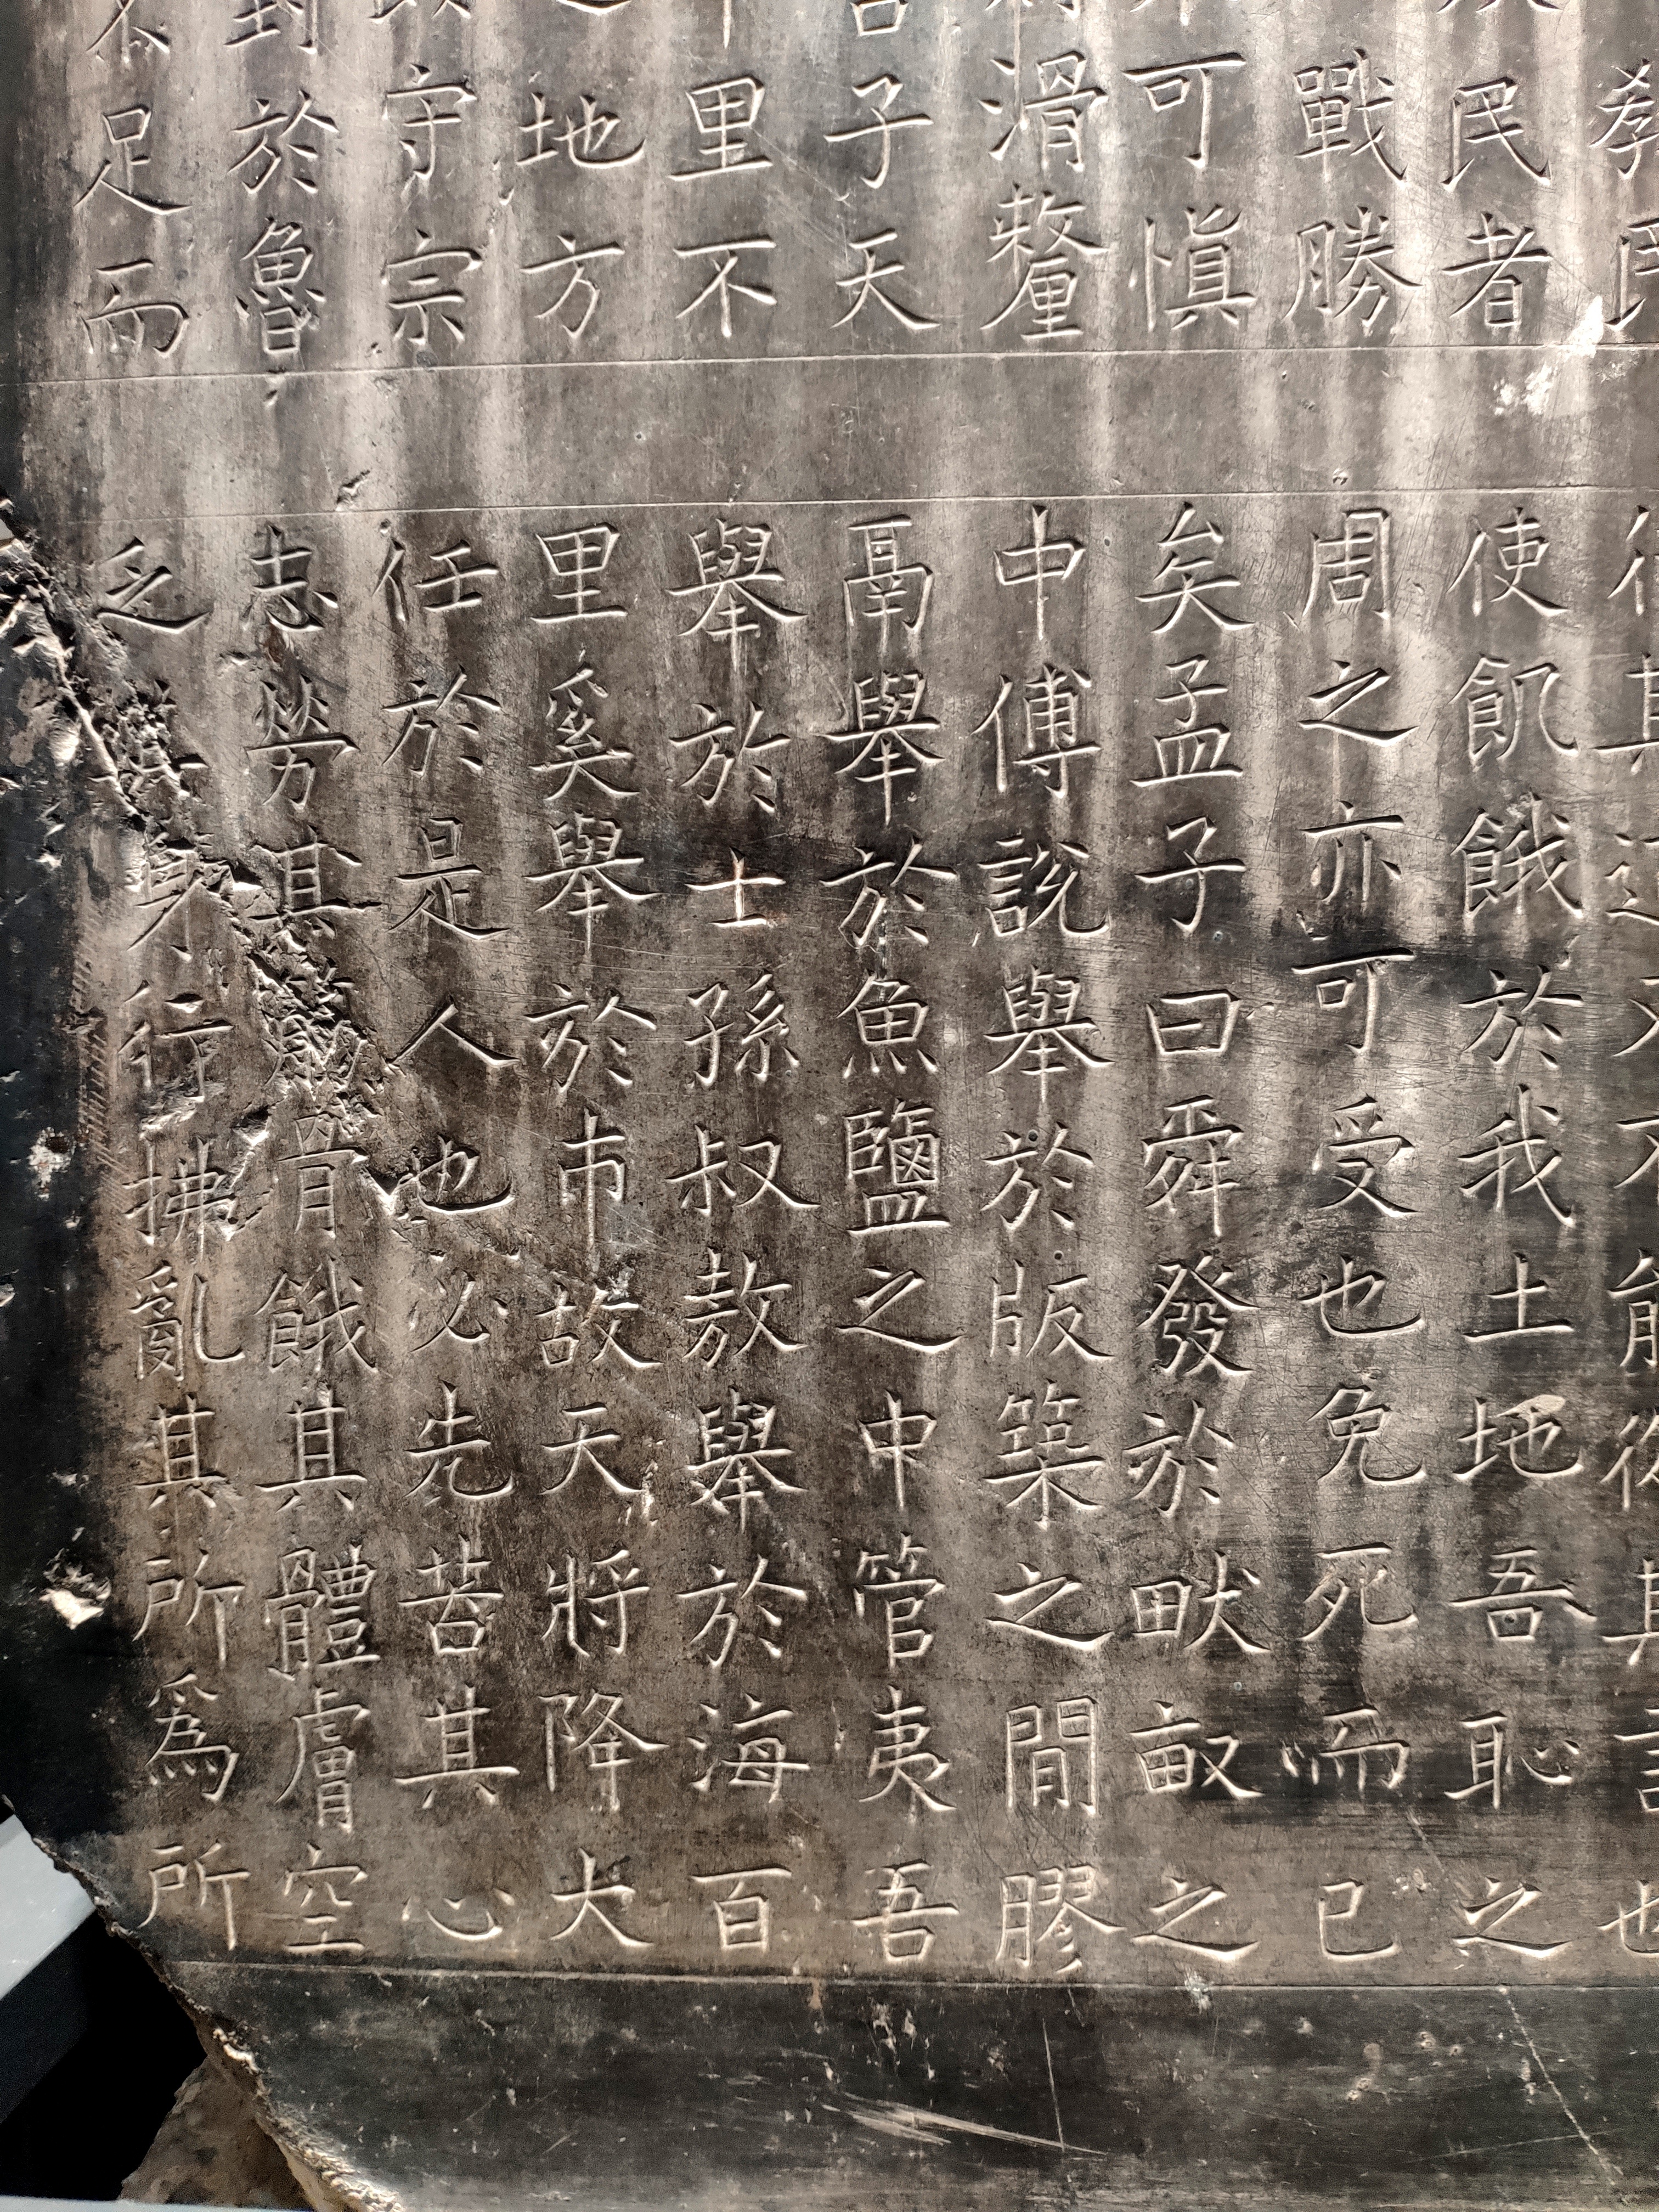 教民
民者
戰勝
可慎
滑釐
子天
里不
地方
守宗
封於魯
不足而
使飢餓於我土地吾恥之
周之亦可受也免死而已
矣孟子曰舜發於畎畝之
中傅說舉於版築之間膠
鬲舉於魚鹽之中管夷吾
舉於士孫叔敖舉於海百
里奚舉於市故天將降大
任於是人也必先苦其心
志勞其筋骨餓其體膚空
乏其身行拂亂其所爲所